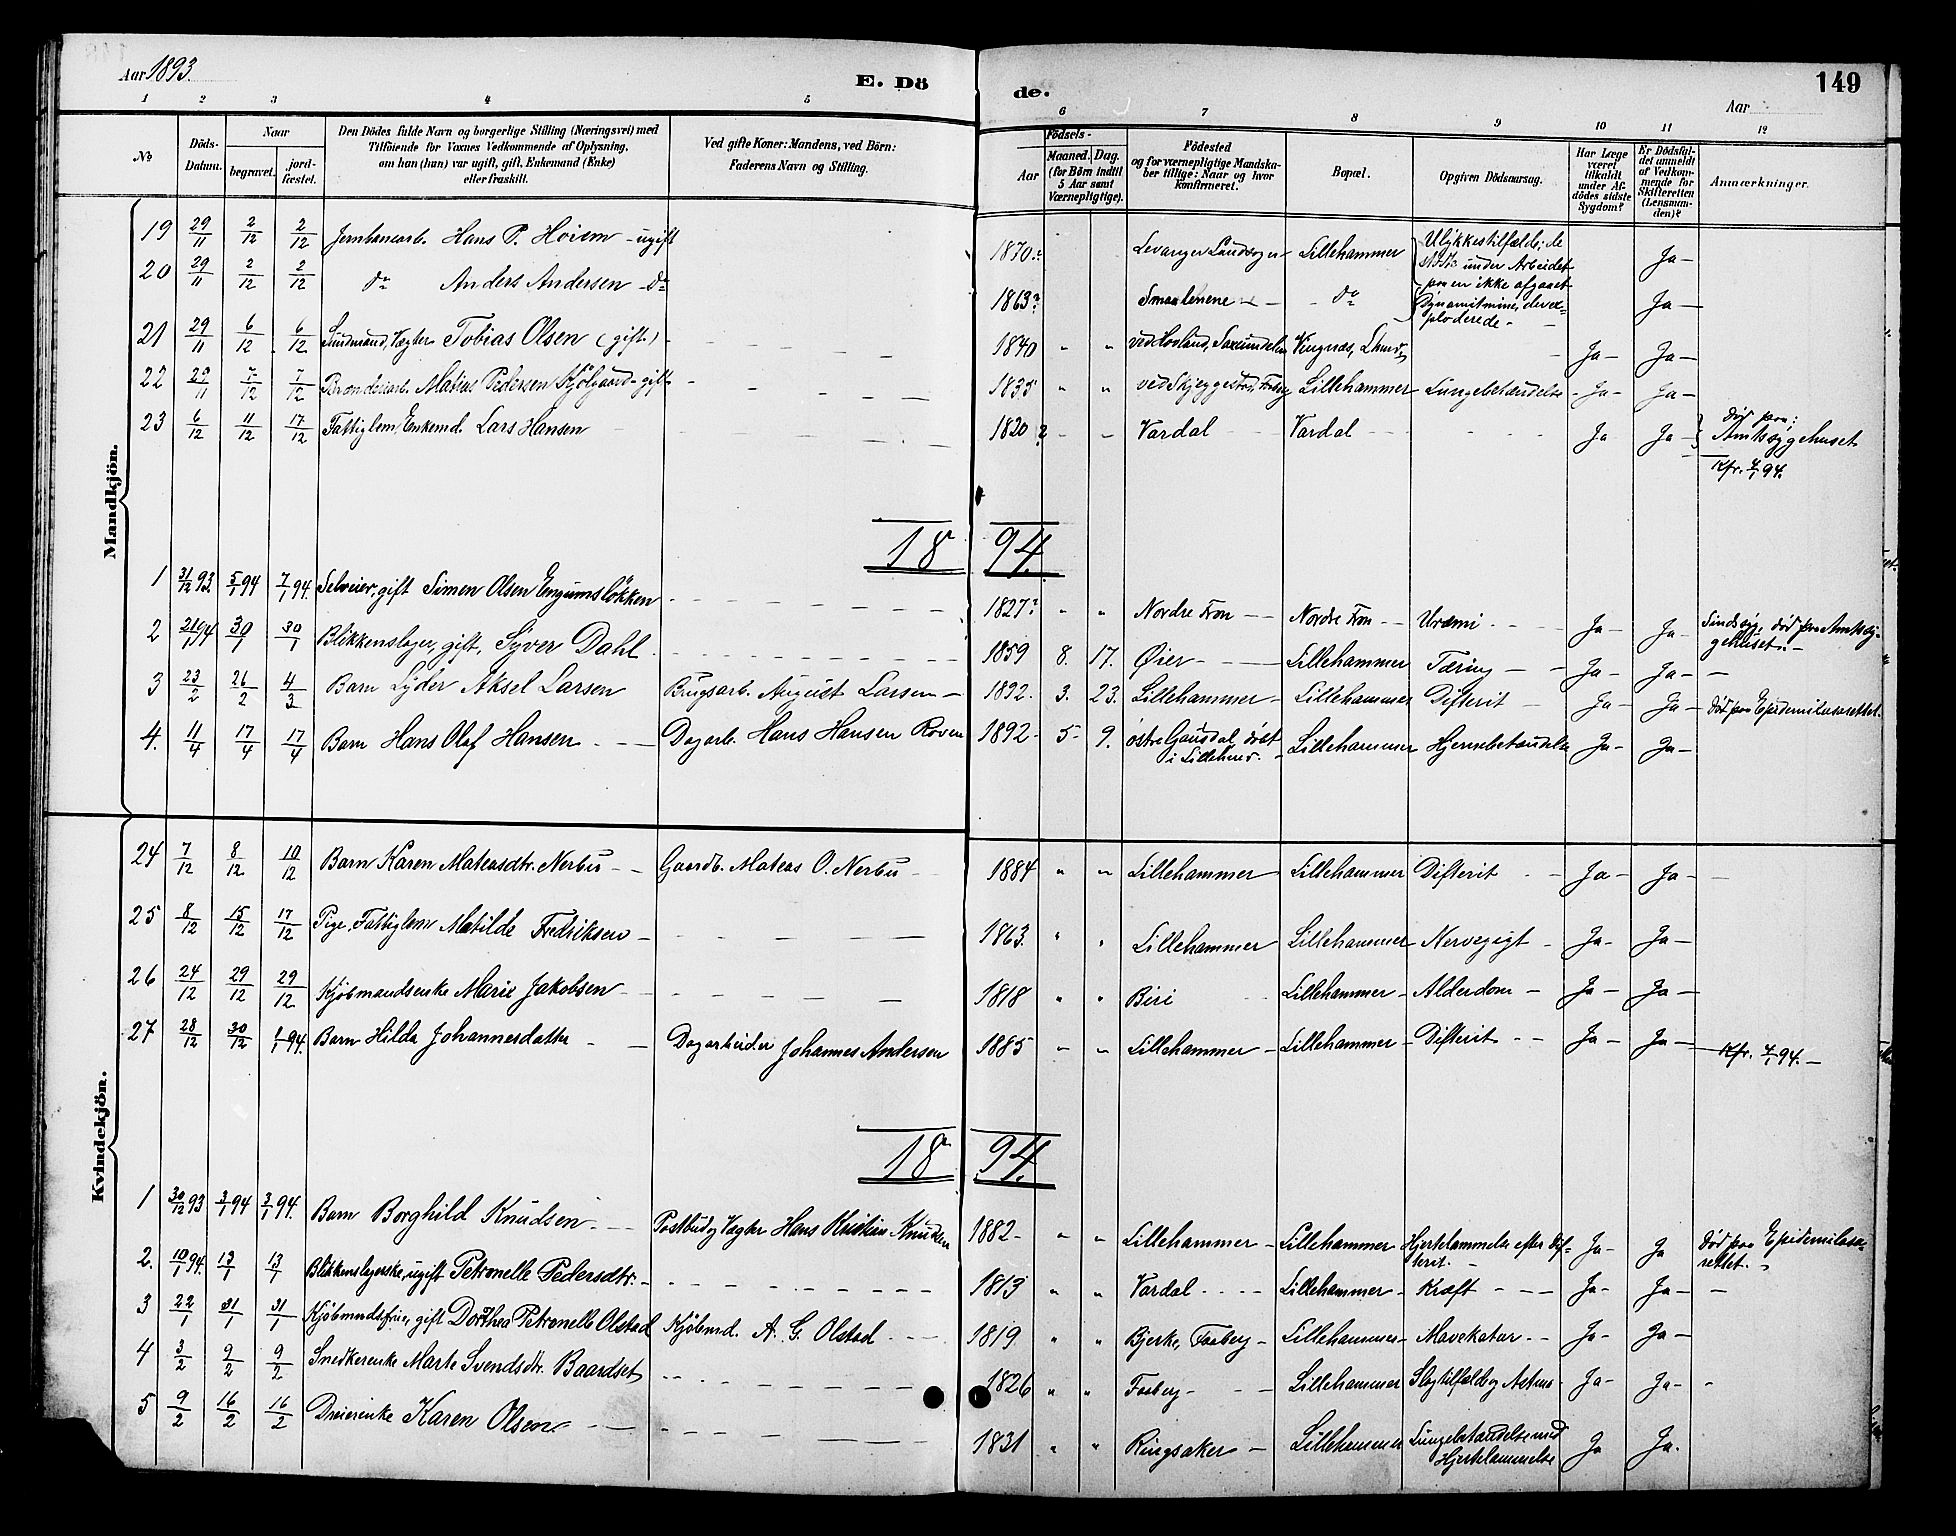 Aar 1893.
E. Dö de.
149
Aar
1 2 3 4 5 6 7 8 9 10 11 12
No
Döds-Datum.
Naar begravet. jord-fæstet.
Den Dödes fulde Navn og borgerlige Stilling (Næringsvei) med
Tilföiende for Voxnes Vedkommende af Oplysning,
om han (hun) var ugift, gift, Enkemand (Enke)
eller fraskilt.
Ved gifte Koner: Mandens, ved Börn:
Faderens Navn og Stilling.
Födsels-
Aar Maaned. Dag. (for Börn indtil 5 Aar samt Værnepligtige).
Födested
og for værnepligtige Mandska-
ber tillige: Naar og hvor
konfirmeret.
Bopæl.
Opgiven Dödsaarsag.
Har Læge været tilkaldt under Af-dödes sidste Sygdom?
Er Dödsfal-det anmeldt af Vedkom-mende for Skifteretten (Lensman-den)?
Anmærkninger.
Mandkjön.
19 29/11 2/12 2/12 Jernbanearb. Hans P. Hoiem - ugift 1870? Levanger Landsogn Lillehammer Ulykkestilfælde; de stødte under Arbeidet paa en ikke afgaaet Dynamitmine, der ex-ploderede - Ja -
20 29/11 2/12 2/12 do Anders Andersen - do 1863? Smaalenene - do Ja -
21 29/11 6/12 6/12 Sundmand, Vægter Tobias Olsen (gift) - 1840 " " ved Hovland, Vingnæs, Ja - Ja -
22 29/11 7/12 7/12 Matias Pedersen - gift 1835 " " ved Skjeggestad, Faaberg Lillehammer Lungebetændelse - Ja - Ja -
23 6/12 11/12 17/12 Fattiglem, Enkemd. Lars Hansen 1820? - " Vardal Vardal Ja Ja - Död paa: Amtssygehuset Kfr. 7/1 94.
18 94.
1 31/12 93 5/1 94 7/1 94. Selveier, gift Simen Olsen Engumsløkken 1827? " " Nordre Fron - Nordre Fron - Uræmi - Ja - Ja - Sindssyg, död paa Amtssy-gehuset. -
2 21/1 94 30/1 30/1 Blikkenslager, gift, Syver Dahl. 1859 8. 17. Øier - Lillehammer Tæring - Ja - Ja - -
3 23/2 26/2 4/3 Barn Lyder Aksel Larsen Brugsarb. August Larsen - 1892. 3. 23. Lillehammer - Lillehammer Difterit Ja - Ja - Död paa Epidemilasarettet.
4. 11/4 17/4 17/4 Barn Hans Olaf Hansen - Dagarb. Hans Hansen Roven 1892 - 5 - 9. Østre Gausdal, döbt i Lillehmr. Lillehammer Hjernebetændelse Ja - Ja -
Kvindekjön.
24 7/12 8/12 10/12 Barn Karen Mateasdtr. Nerbu - Gaardb. Mateas O. Nerbu 1884 " " Lillehammer Lillehammer Difterit Ja - Ja - -
25 8/12 15/12 17/12 Pige, Fattiglem Matilde Fredriksen - 1863. " " Lillehammer Lillehammer - Nervegigt - Ja - Ja -
26 24/12 29/12 29/12 Kjöbmandsenke Marie Jakobsen - 1818 " " Biri Lillehammer - Alderdom - Ja - Ja -
27 28/12 30/12 1/1 94. Barn Hilda Johannesdatter - Dagarbeider Johannes Andersen 1885 " " Lillehammer - Lillehammer - Difterit - Ja - Ja - Kfr. 7/1 94. -
18 94.
1 30/12 93 3/1 94 3/1 94. Barn Borghild Knudsen - Postbud og Vægter Hans Kristian Knudsen 1882 - " " Lillehammer - Lillehammer Hjertelammelse efter Dif-terit. - Ja - Ja Död paa Epidemilasa-rettet. -
2. 10/1 94. 13/1 13/1 Blikkenslagerske, ugift Petronelle Pedersdtr. - 1813 " " Vardal - Lillehammer - Kræft - Ja - Ja - -
3 22/1 31/1 31/1 Kjöbmandsfrue, gift Dorthea Petronelle Olstad Kjöbmd. A. G. Olstad - 1819 " " Bjerke, Faaberg - Lillehammer - Mavekatar - Ja - Ja -
4 3/2 9/2 9/2 Snedkerenke Marte Svendsdtr. Baardset 1826 " " Faaberg - Lillehammer Slagtilfælde og Astma - Ja - Ja - -
5 9/2 16/2 16/2 Dreierenke Karen Olsen - 1831 " " Ringsaker - Lillehammer Lungebetændelse med Hjertelammelse Ja Ja.